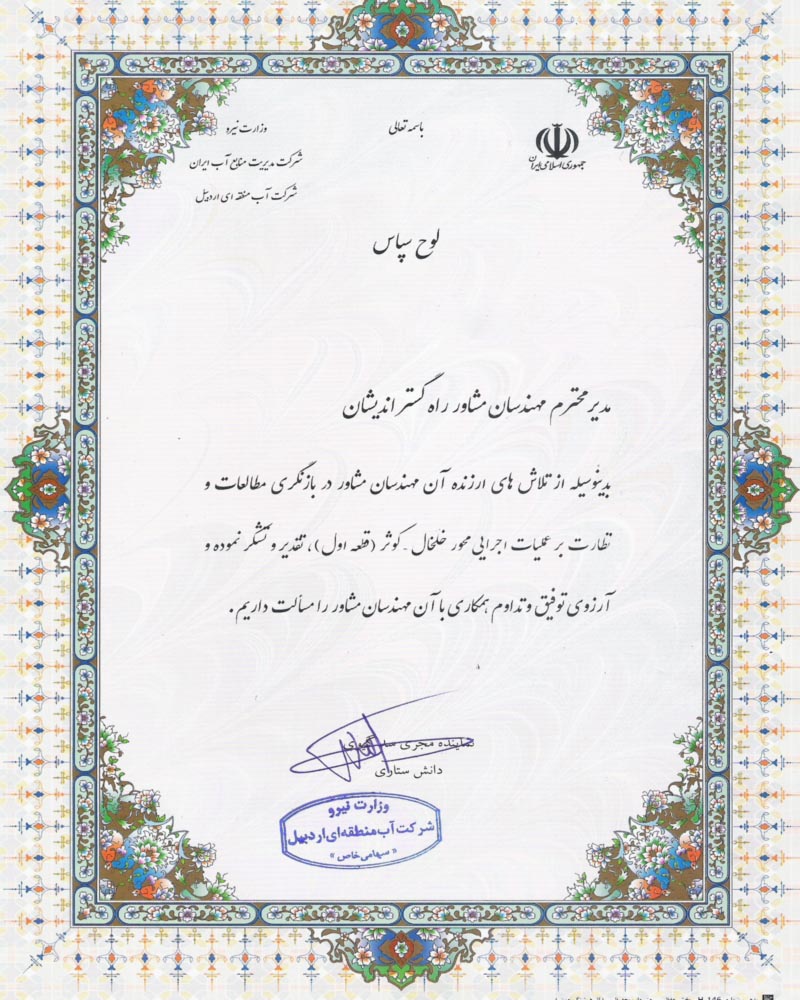 باسمه تعالی
جمهوری اسلامی ایران
وزارت نیرو
شرکت مدیریت منابع آب ایران
شرکت آب منطقه ای اردبیل
لوح سپاس
مدیر محترم مهندسان مشاور راه گستر اندیشان
بدینوسیله از تلاش های ارزنده آن مهندسان مشاور در بازنگری مطالعات و
نظارت بر عملیات اجرایی محور خلخال - کوثر (قطعه اول)، تقدیر و تشکر نموده و
آرزوی توفیق و تداوم همکاری با آن مهندسان مشاور را مسألت داریم.
نماینده مجری سد
دانش ستارای
وزارت نیرو
شرکت آب منطقه‌ای اردبیل
« سهامی خاص »